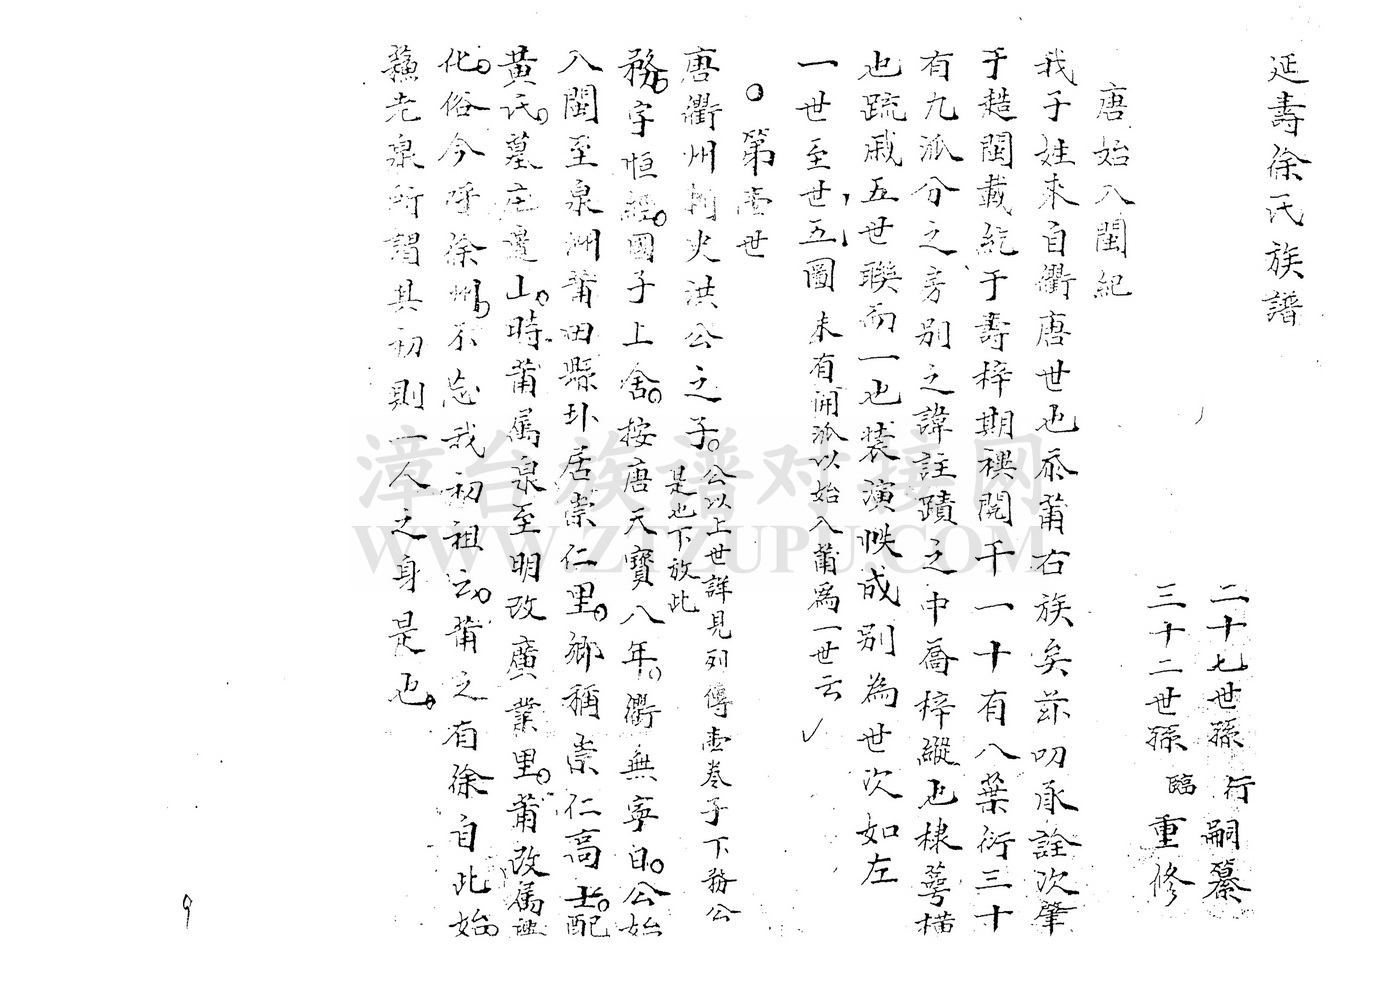 延壽徐氏族譜
二十七世孫行嗣纂
三十二世孫臨重修
唐始入閩紀
我子姓來自衢唐世也忝莆右族矣茲叨承詮次肇
于趂閩載紇于壽梓期禩閱千一十有八葉衍三十
有九派分之旁別之諱註蹟之中喬梓縱也棣萼橫
也䟽戚五世聯而一也装演帙成別為世次如左
一世至世五圖未有開派以始入莆爲一世云
第壹世
唐衢州判火洪公之子公以上世詳見列傳壹卷子下務公
是也下放此
務字恒經國子上舍按唐天寶八年衢無寧日公始
入閩至泉洲莆田縣卜居崇仁里鄉稱崇仁高士配
黃氏墓庄邊山時莆属泉至明改廣業里莆改属
化俗今呼徐州不忘我初祖云莆之有徐自此始
蘓老泉所謂其初則一人之身是也
9
漳台族谱对接网
WWW.ZTZUPU.COM